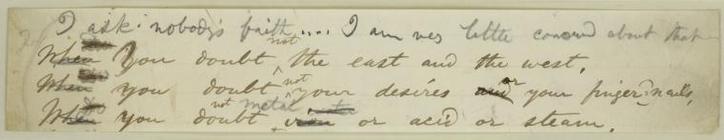 I ask nobody's faith .... I am very little concerned about that
You doubt not the east and the west,
You doubt not your desires or your finger-nails,
You doubt not metal or acid or steam.